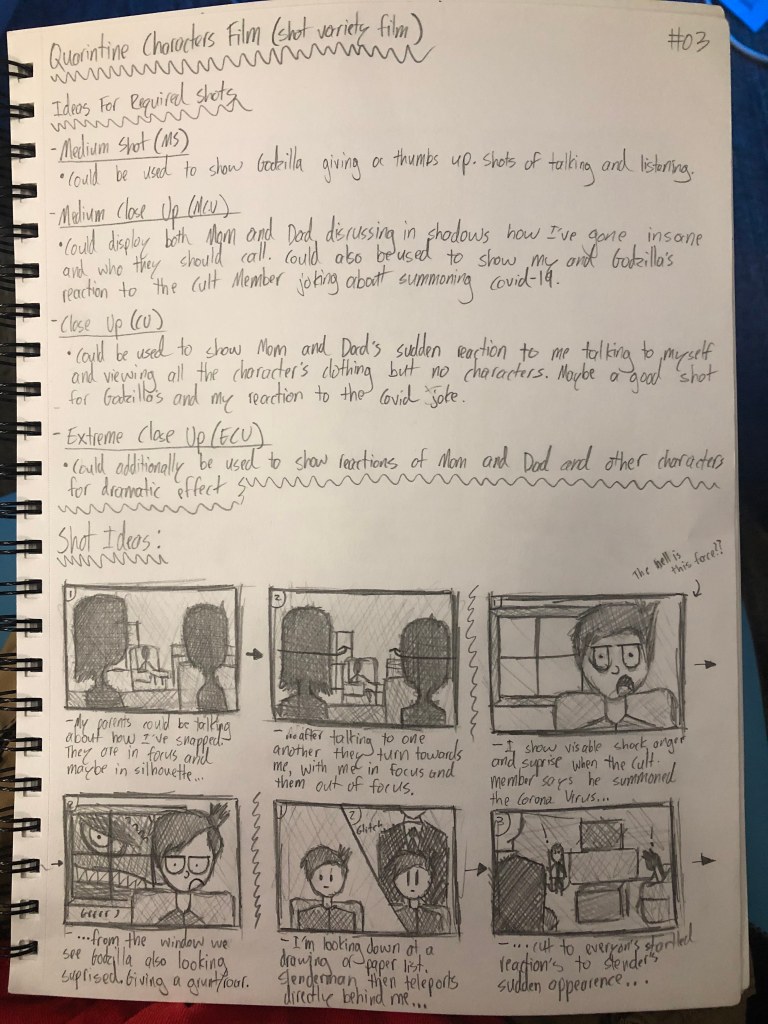 Quarintine Characters Film (shot variety film)
#03
Ideas For Required Shots
- Medium Shot (MS)
• Could be used to show Godzilla giving a thumbs up. Shots of talking and listening.
- Medium Close Up (MCU)
• Could display both Mom and Dad discussing in shadows how I've gone insane
and who they should call. Could also be used to show my and Godzilla's
reaction to the Cult Member joking about summoning Covid-19.
- Close Up (CU)
• Could be used to show Mom and Dad's sudden reaction to me talking to myself
and viewing all the character's clothing but no characters. Maybe a good shot
for Godzilla's and my reaction to the Covid joke.
- Extreme Close Up (ECU)
• Could additionally be used to show reactions of Mom and Dad and other characters
for dramatic effect
Shot Ideas:
The hell is
this face??
1
2
1
- My parents could be talking
about how I've snapped.
They are in focus and
maybe in silhouette...
- ...after talking to one
another they turn towards
me, with me in focus and
them out of focus.
- I show visable shock, anger
and suprise when the Cult
member says he summoned
the Corona Virus...
2
Grrrr
1
2
Glitch
3
! !
- ...from the window we
see Godzilla also looking
suprised. Giving a grunt/roar.
- I'm looking down at a
drawing or paper list.
Slenderman then teleports
directly behind me...
- ...cut to everyone's startled
reaction's to slender's
sudden appearence...